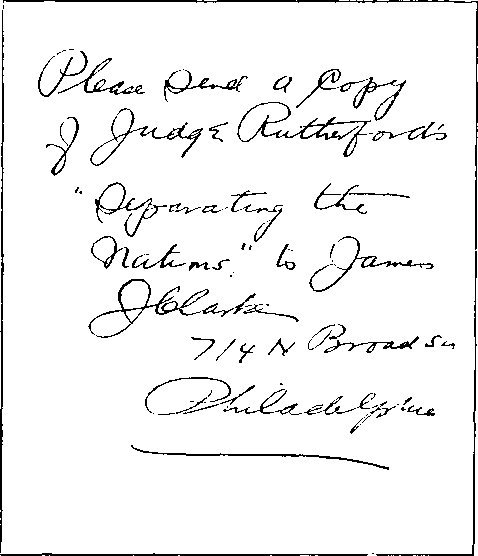 Please send a Copy
of Judge Rutherford's
"Separating the
Nations." to James
J Clarke
714 N Broad St
Philadelphia